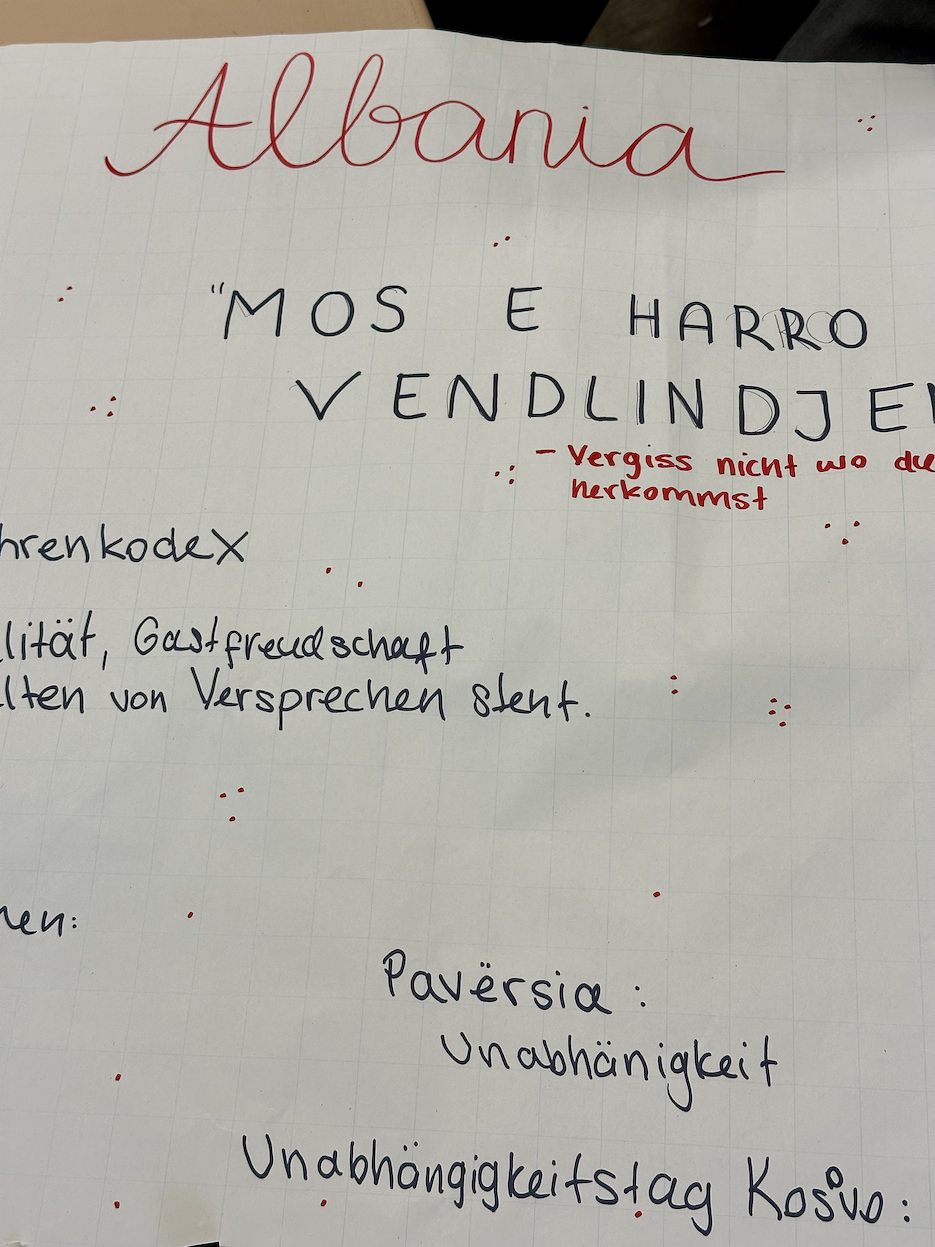 Albania
"MOS E HARRO
VENDLINDJEN
- Vergiss nicht wo du
herkommst
hrenkodex
lität, Gastfreudschaft
lten von Versprechen steht.
nen:
Pavërsia:
Unabhänigkeit
Unabhängigkeitstag Kosovo: